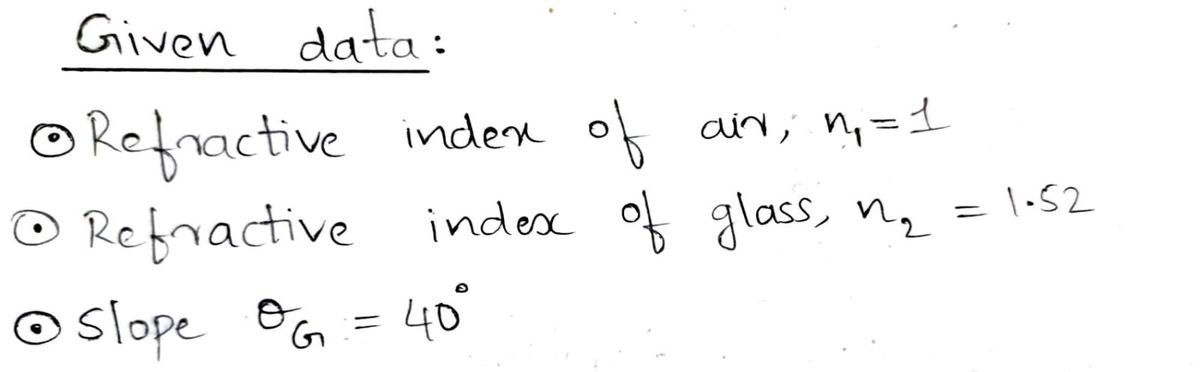 Given data:
⊙ Refractive index of air, n₁ = 1
⊙ Refractive index of glass, n₂ = 1.52
⊙ Slope θG = 40°